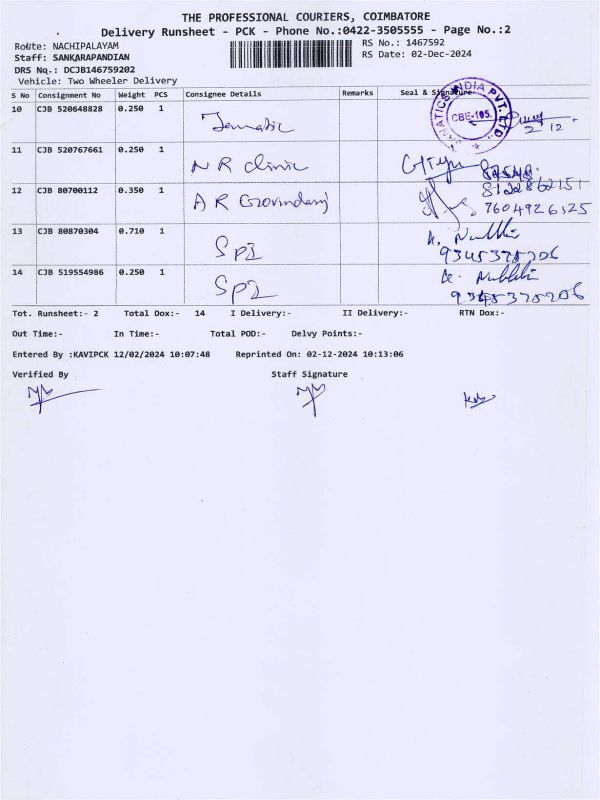 THE PROFESSIONAL COURIERS, COIMBATORE
Delivery Runsheet - PCK - Phone No.:0422-3505555 - Page No.:2
Route: NACHIPALAYAM
RS No.: 1467592
Staff: SANKARAPANDIAN
RS Date: 02-Dec-2024
DRS No.: DCJB146759202
Vehicle: Two Wheeler Delivery
S No Consignment No Weight PCS Consignee Details Remarks Seal & Signature
10 CJB 520648828 0.250 1
INDIA PVT. LTD.
CBE-105.
2 12
11 CJB 520767661 0.250 1 N R clinic
12 CJB 80700112 0.350 1 A R Govindaraj
7604926325
13 CJB 80870304 0.710 1 SPI
9345375206
14 CJB 519554986 0.250 1 SPI
9345375206
Tot. Runsheet:- 2 Total Dox:- 14 I Delivery:- II Delivery:- RTN Dox:-
Out Time:- In Time:- Total POD:- Delvy Points:-
Entered By :KAVIPCK 12/02/2024 10:07:48 Reprinted On: 02-12-2024 10:13:06
Verified By Staff Signature